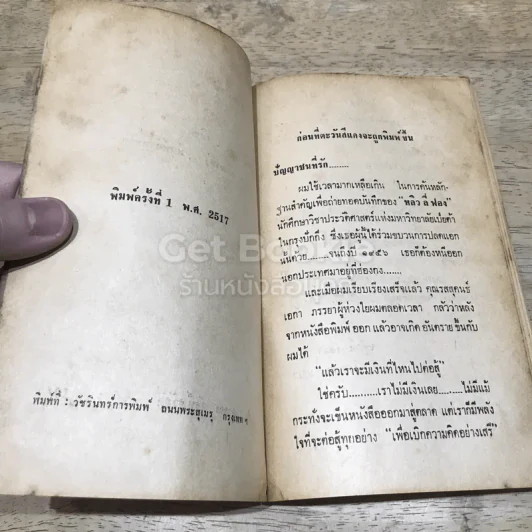 พิมพ์ครั้งที่ 1 พ.ศ. 2517
พิมพ์ที่ : วัชรินทร์การพิมพ์ ถนนพระสุเมรุ กรุงเทพ ฯ
ก่อนที่ตะวันสีแดงจะถูกพิมพ์ขึ้น
ปัญญาชนที่รัก.......
ผมใช้เวลามากเหลือเกิน ในการค้นหลัก-
ฐานสำคัญเพื่อถ่ายทอดบันทึกของ "หลิว ลี่ ฟอง"
นักศึกษาวิชาประวัติศาสตร์แห่งมหาวิทยาลัยเป่ยต้า
ในกรุงปักกิ่ง ซึ่งเธอผู้นี้ได้ร่วมขบวนการปลดแอก
นั้นด้วย.......จนถึงปี ๑๙๕๖ เธอก็ต้องหนีออก
นอกประเทศมาอยู่ที่ฮ่องกง.......
และเมื่อผมเรียบเรียงเสร็จแล้ว คุณรสสุคนธ์
เอกา ภรรยาผู้ห่วงใยผมตลอดเวลา กลัวว่าหลัง
จากหนังสือพิมพ์ ออก แล้วอาจเกิด อันตราย ขึ้นกับ
ผมได้
"แล้วเราจะมีเงินที่ไหนไปต่อสู้"
ใช่ครับ..........เราไม่มีเงินเลย.......ไม่มีแม้
กระทั่งจะเข็นหนังสือออกมาสู่ตลาด แต่เราก็มีพลัง
ใจที่จะต่อสู้ทุกอย่าง "เพื่อเบิกความคิดอย่างเสรี
Get Bookie
ร้านหนังสือ